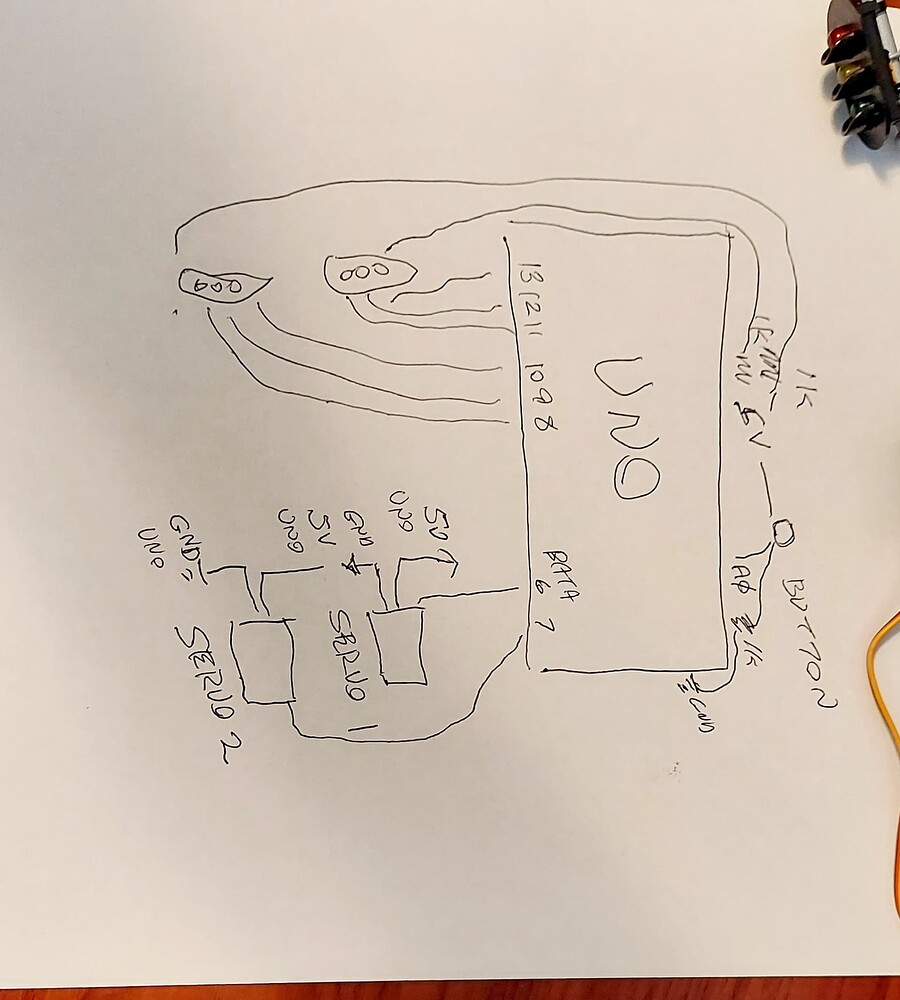 1K
BUTTON
1K
5V
AØ
1K
GND
UNO
13 12 11 10 9 8
DATA
6 7
5V
UNO
GND
5V
UNO
SERVO 1
GND
UNO
SERVO 2